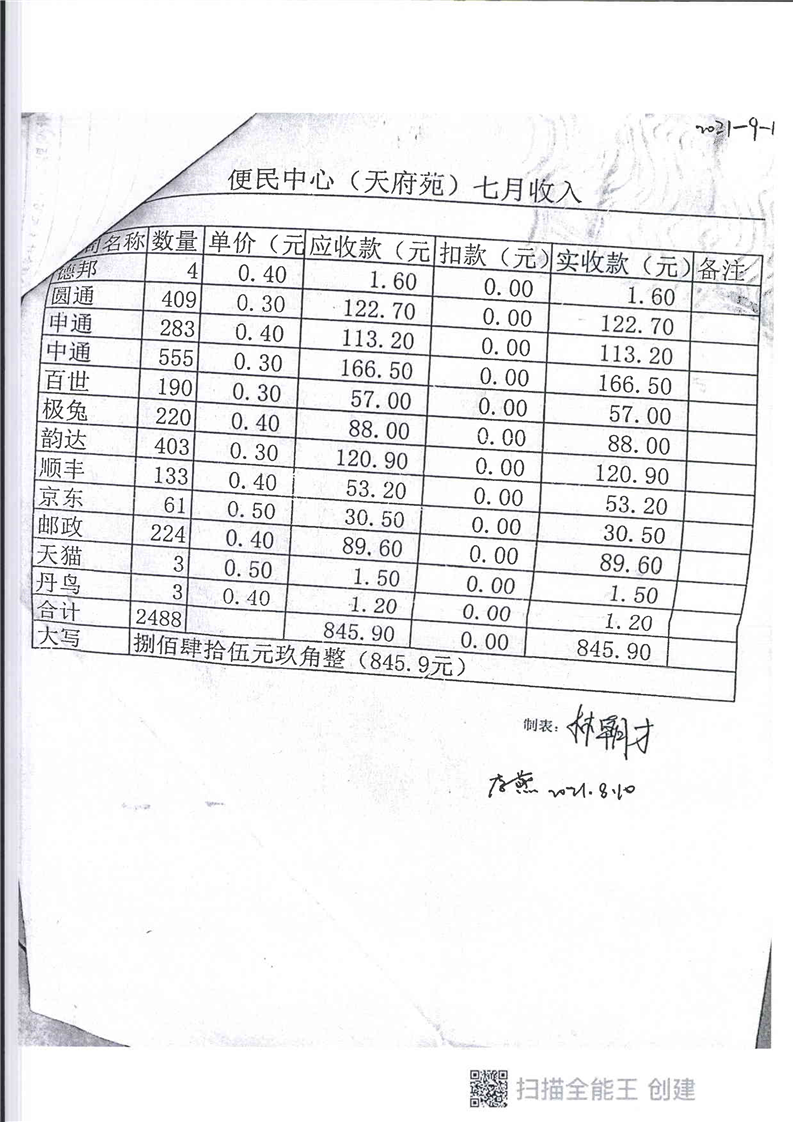 2021-9-1
便民中心（天府苑）七月收入
司名称 数量 单价（元 应收款（元 扣款（元） 实收款（元） 备注
德邦 4 0.40 1.60 0.00 1.60
圆通 409 0.30 122.70 0.00 122.70
申通 283 0.40 113.20 0.00 113.20
中通 555 0.30 166.50 0.00 166.50
百世 190 0.30 57.00 0.00 57.00
极兔 220 0.40 88.00 0.00 88.00
韵达 403 0.30 120.90 0.00 120.90
顺丰 133 0.40 53.20 0.00 53.20
京东 61 0.50 30.50 0.00 30.50
邮政 224 0.40 89.60 0.00 89.60
天猫 3 0.50 1.50 0.00 1.50
丹鸟 3 0.40 1.20 0.00 1.20
合计 2488 845.90 0.00 845.90
大写 捌佰肆拾伍元玖角整（845.9元）
制表：林朝才
李燕 2021.8.10
扫描全能王 创建